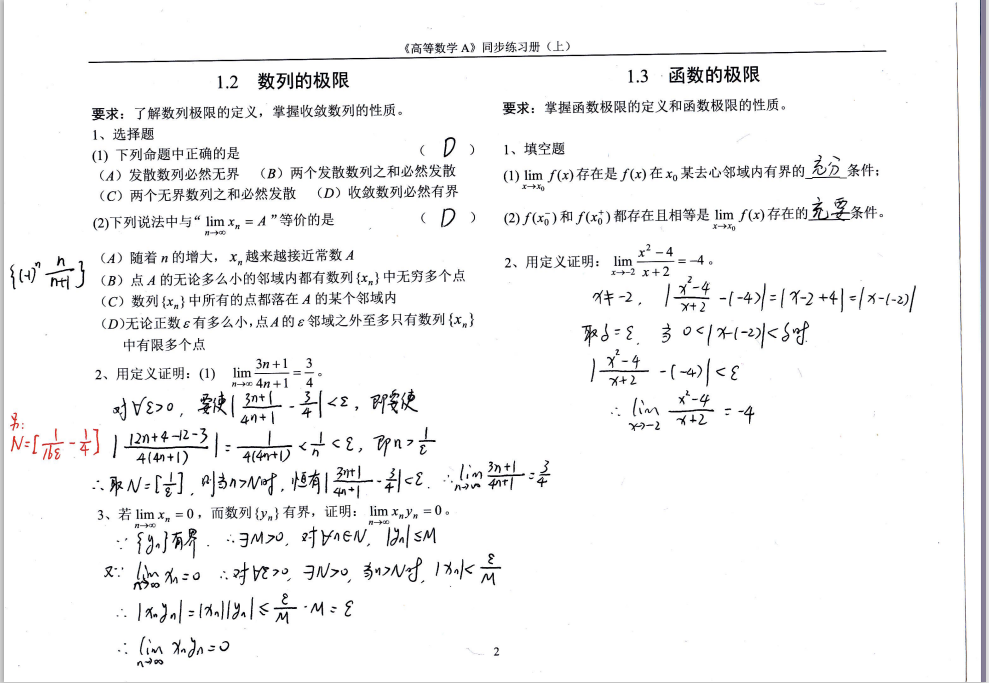 《高等数学 A》同步练习册（上）
1.2 数列的极限
要求：了解数列极限的定义，掌握收敛数列的性质。
1、选择题
(1) 下列命题中正确的是 （ D ）
（A）发散数列必然无界 （B）两个发散数列之和必然发散
（C）两个无界数列之和必然发散 （D）收敛数列必然有界
(2)下列说法中与“ lim_{n→∞} xₙ = A ”等价的是 （ D ）
{(-1)ⁿ n/(n+1)}
（A）随着 n 的增大， xₙ 越来越接近常数 A
（B）点 A 的无论多么小的邻域内都有数列{xₙ}中无穷多个点
（C）数列{xₙ}中所有的点都落在 A 的某个邻域内
（D)无论正数 ε 有多么小，点 A 的 ε 邻域之外至多只有数列{xₙ}
中有限多个点
2、用定义证明：(1) lim_{n→∞} (3n+1)/(4n+1) = 3/4 。
对∀ε>0，要使|(3n+1)/(4n+1) - 3/4|<ε，即要使
另:
N=[1/(16ε) - 1/4]
|(12n+4-12-3)/(4(4n+1))| = 1/(4(4n+1)) < 1/n < ε，即n>1/ε
∴取N=[1/ε]，则当n>N时，恒有|(3n+1)/(4n+1) - 3/4|<ε. ∴lim_{n→∞} (3n+1)/(4n+1) = 3/4
3、若 lim_{n→∞} xₙ = 0，而数列{yₙ}有界，证明： lim_{n→∞} xₙyₙ = 0。
∵{yₙ}有界. ∴∃M>0, 对∀n∈N, |yₙ|≤M
又∵ lim_{n→∞} xₙ=0 ∴对∀ε>0, ∃N>0, 当n>N时, |xₙ|< ε/M
∴|xₙyₙ|=|xₙ||yₙ|≤ ε/M · M = ε
∴ lim_{n→∞} xₙyₙ=0
1.3 函数的极限
要求：掌握函数极限的定义和函数极限的性质。
1、填空题
(1) lim_{x→x₀} f(x) 存在是 f(x) 在 x₀ 某去心邻域内有界的 充分 条件；
(2) f(x₀⁻) 和 f(x₀⁺) 都存在且相等是 lim_{x→x₀} f(x) 存在的 充要 条件。
2、用定义证明： lim_{x→-2} (x²-4)/(x+2) = -4 。
x≠-2, |(x²-4)/(x+2) -(-4)|=|x-2+4|=|x-(-2)|
取δ=ε, 当 0<|x-(-2)|<δ时
|(x²-4)/(x+2) -(-4)|<ε
∴ lim_{x→-2} (x²-4)/(x+2) = -4
2